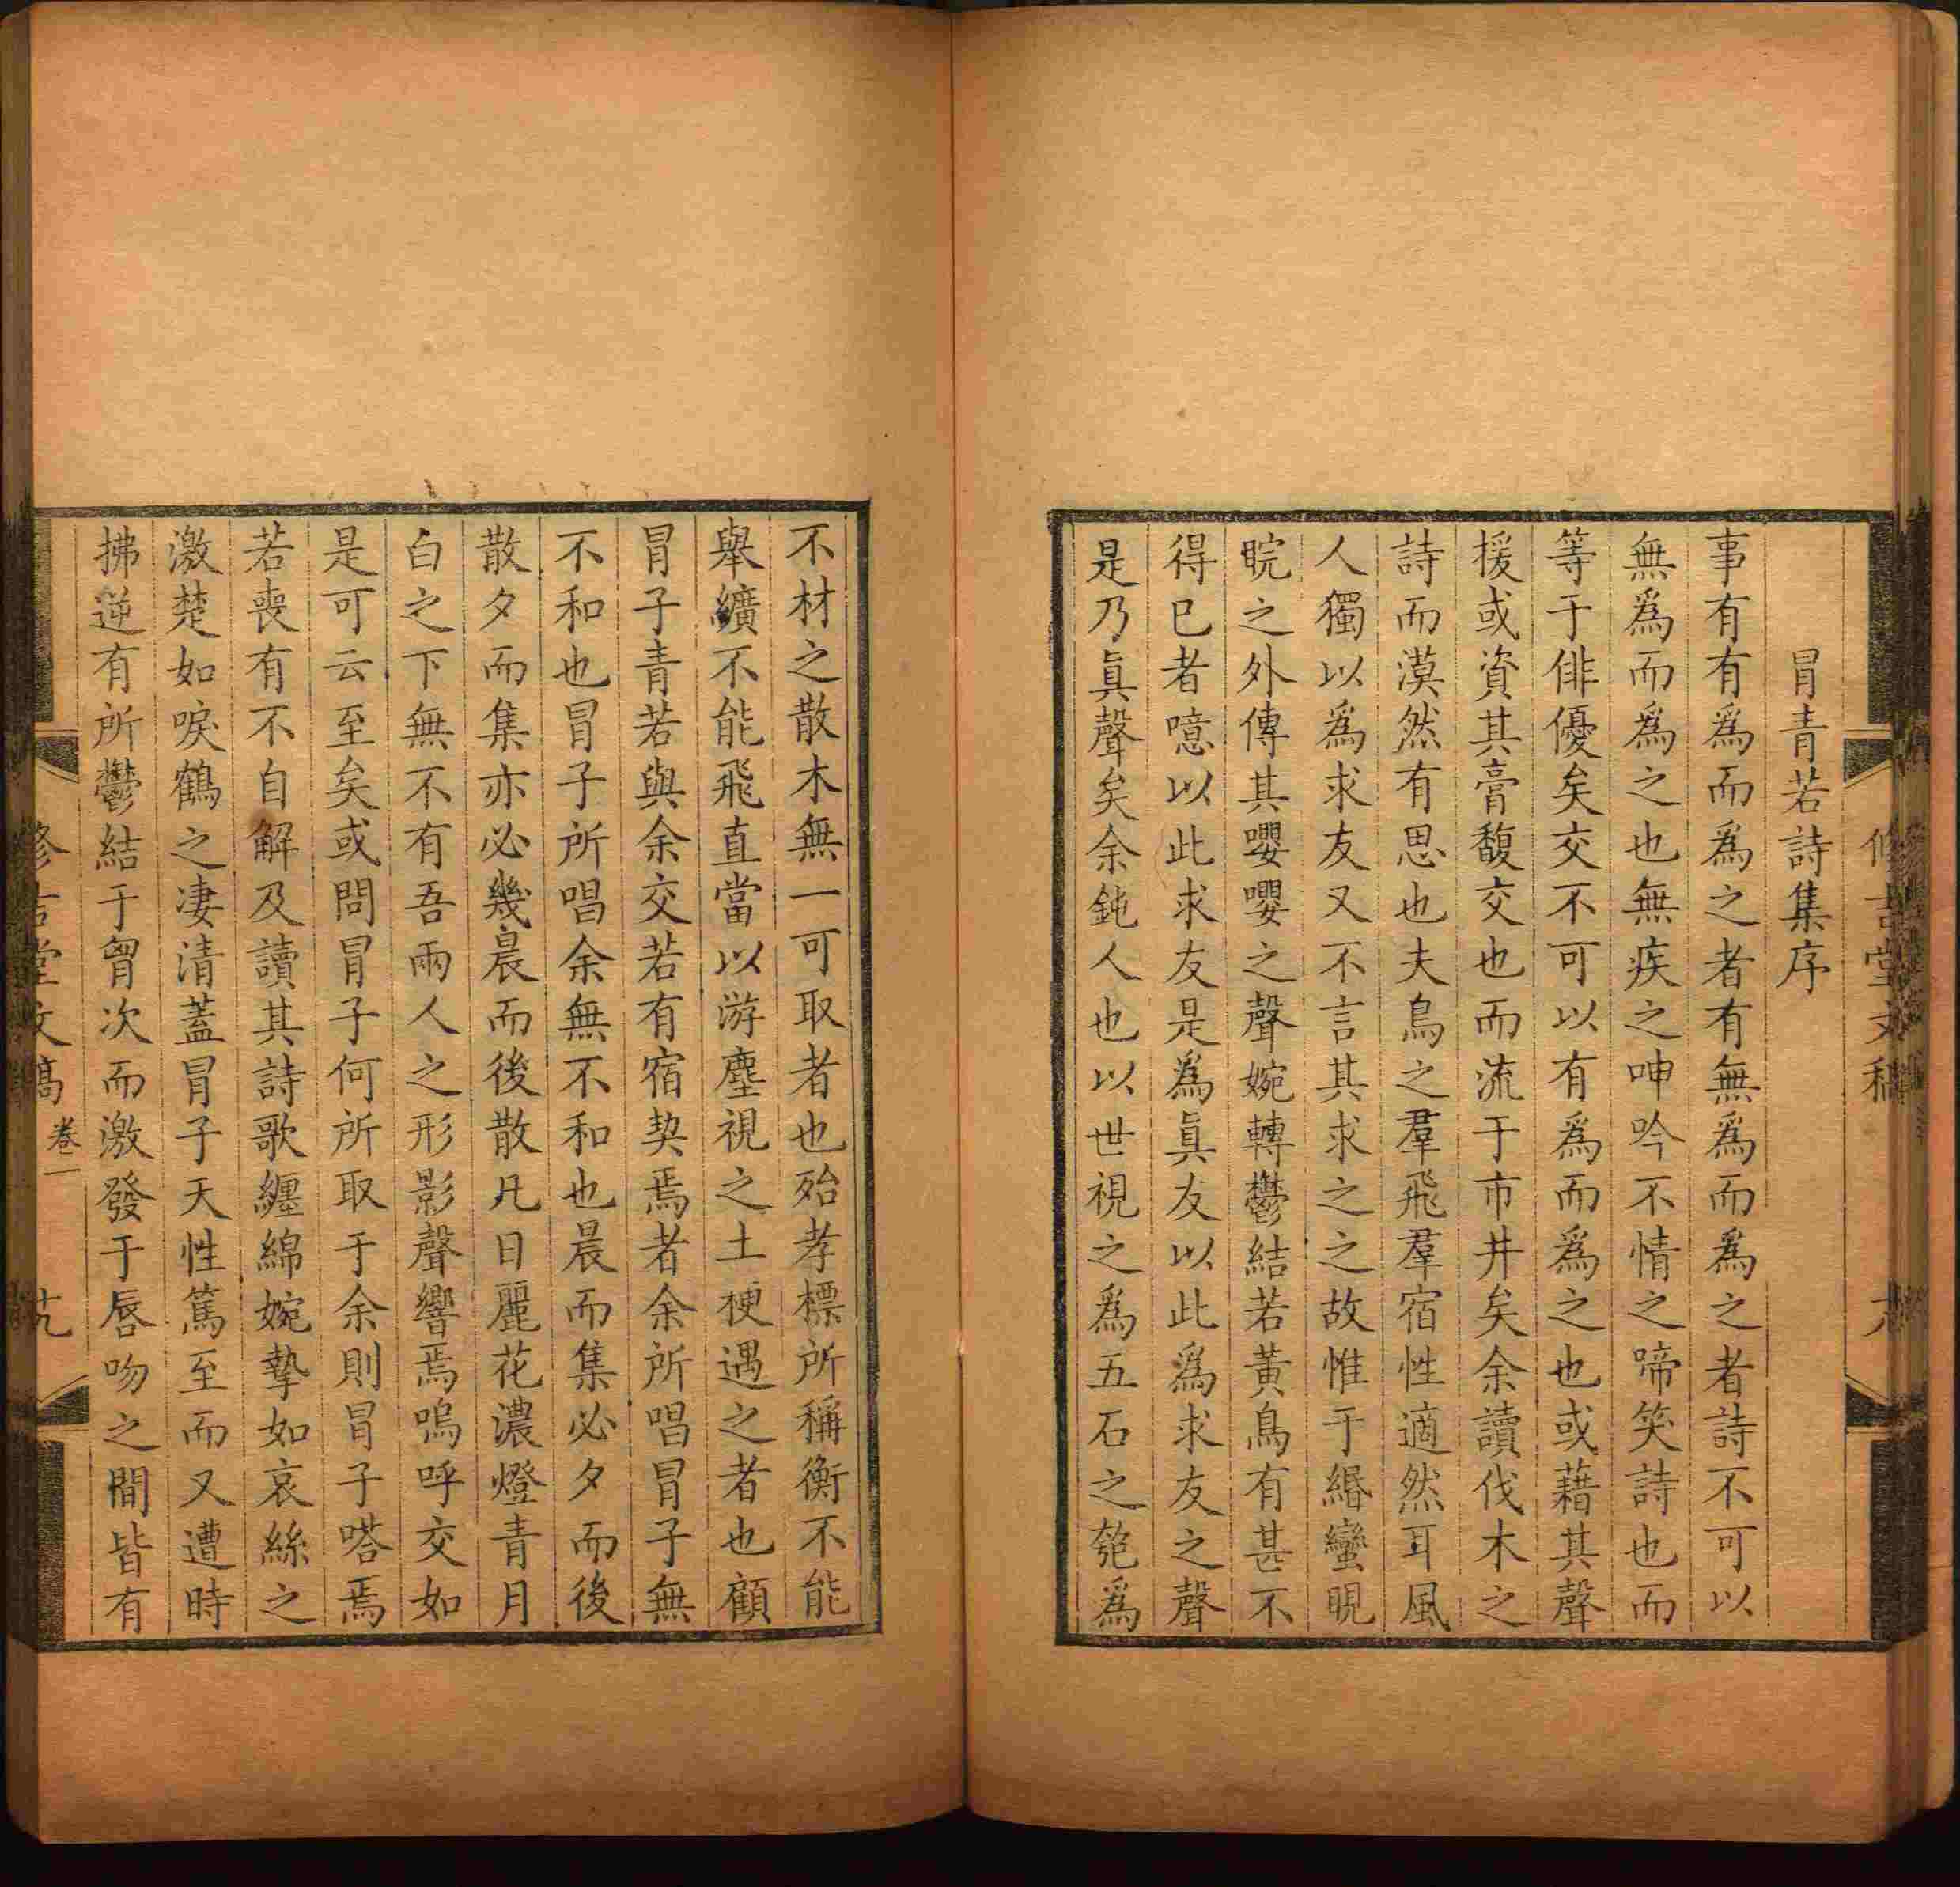 冒青若詩集序
事有有爲而爲之者有無爲而爲之者詩不可以
無爲而爲之也無疾之呻吟不情之啼笑詩也而
等于俳優矣交不可以有爲而爲之也或藉其聲
援或資其膏馥交也而流于市井矣余讀伐木之
詩而漠然有思也夫鳥之羣飛羣宿性適然耳風
人獨以爲求友又不言其求之之故惟于緡蠻睍
睆之外傳其嚶嚶之聲婉轉鬱結若黃鳥有甚不
得已者噫以此求友是爲眞友以此爲求友之聲
是乃眞聲矣余鈍人也以世視之爲五石之瓠爲
不材之散木無一可取者也殆孝標所稱衡不能
舉纊不能飛直當以游塵視之土梗遇之者也顧
冒子青若與余交若有宿契焉者余所唱冒子無
不和也冒子所唱余無不和也晨而集必夕而後
散夕而集亦必幾晨而後散凡日麗花濃燈青月
白之下無不有吾兩人之形影聲響焉嗚呼交如
是可云至矣或問冒子何所取于余則冒子嗒焉
若喪有不自解及讀其詩歌纏綿婉摯如哀絲之
激楚如唳鶴之凄清蓋冒子天性篤至而又遭時
拂逆有所鬱結于胷次而激發于唇吻之間皆有
修吉堂文稿 卷一